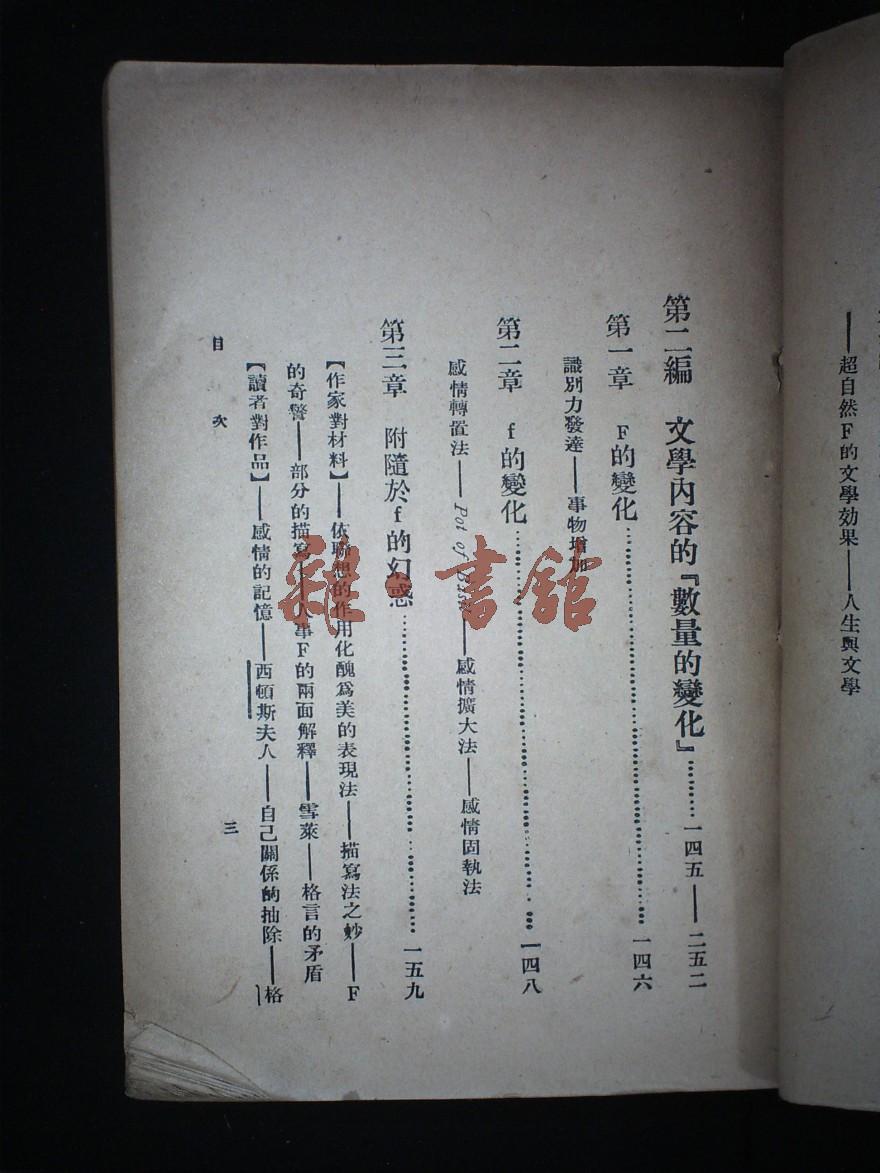 ——超自然F的文學効果——人生與文學
第二編　文學內容的『數量的變化』…………一四五——二五二
第一章　F的變化……………………一四六
識別力發達——事物增加
第二章　f的變化……………………一四八
感情轉置法——Pot of ——感情擴大法——感情固執法
第三章　附隨於f的幻惑……………………一五九
【作家對材料】——依聯想的作用化醜爲美的表現法——描寫法之妙——F
的奇警——部分的描寫——人事F的兩面解釋——雪萊——格言的矛盾
【讀者對作品】——感情的記憶——西頓斯夫人——自己關係的抽除——格
目次
三
雜·書館